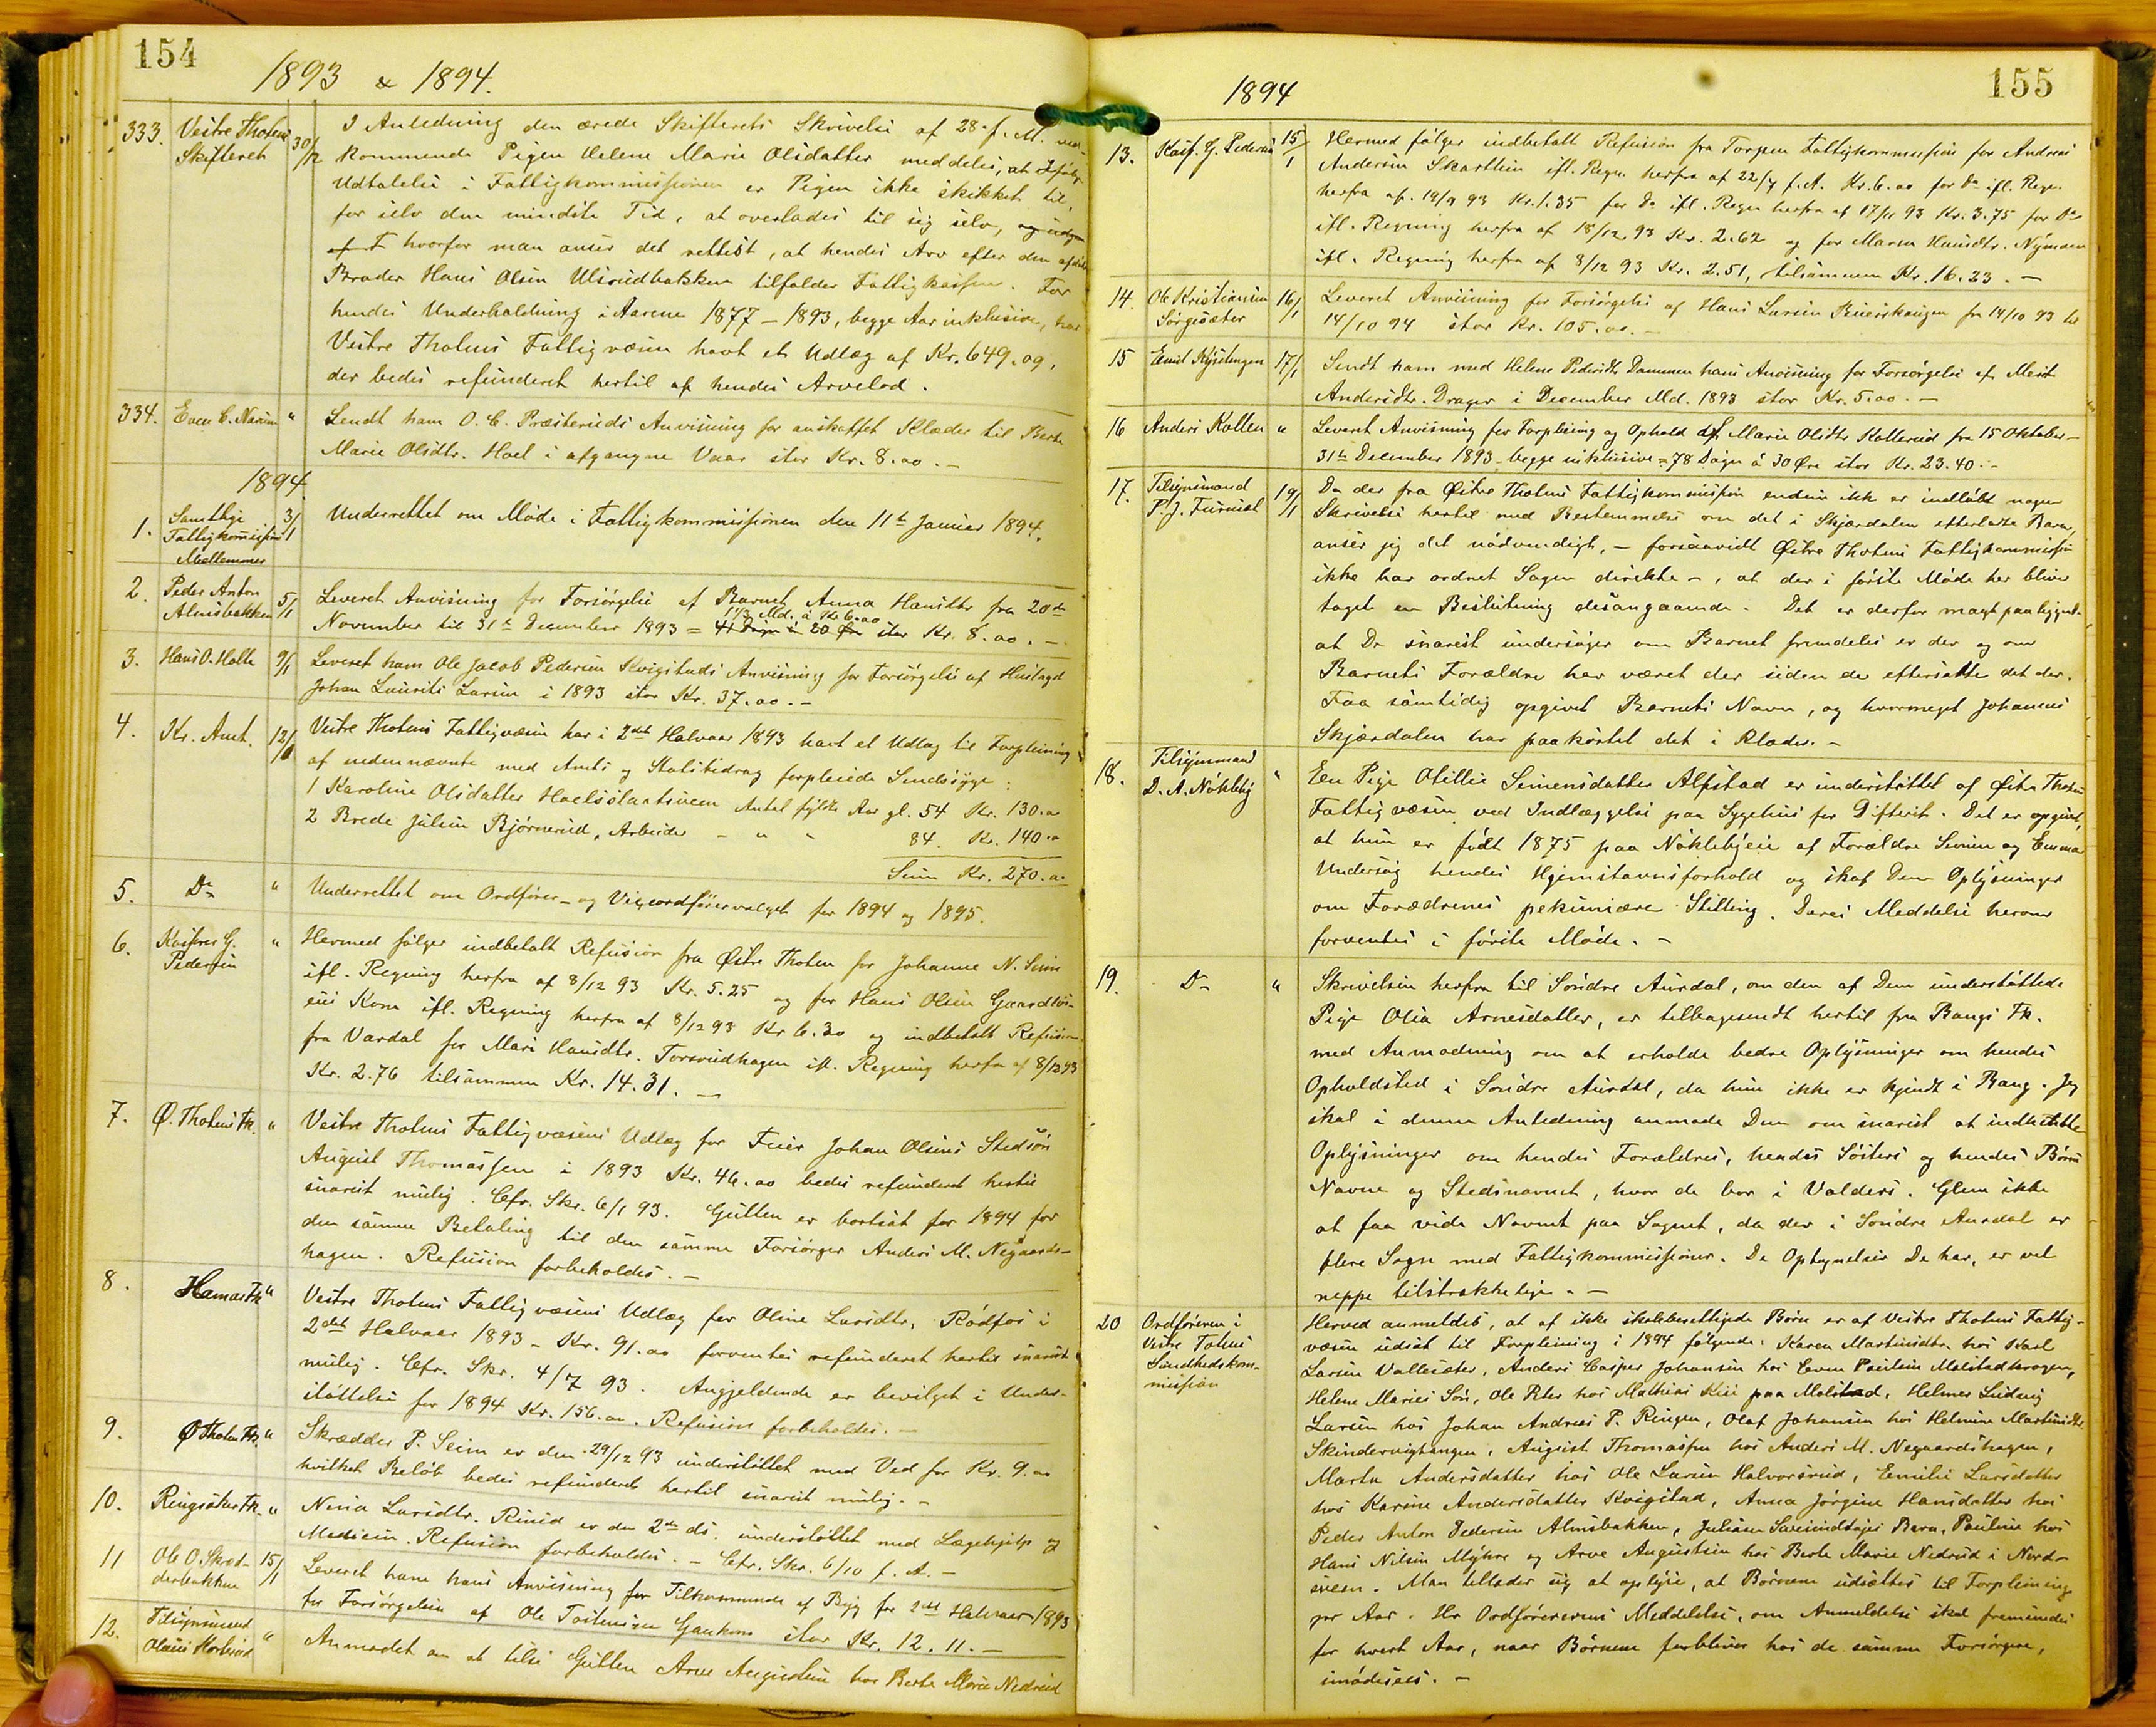 154
1893 & 1894.
333. Vestre Thotens Skifteret 30/12 I Anledning den ærede Skifterets Skrivelse af 28 f. M. ved-
kommende Pigen Helene Marie Olsdatter meddeles, at Ifølge
Udtalelse i Fattigkommissionen er Pigen ikke skikket til,
for selv den mindste Tid, at overlades til sig selv,
hvorfor man anser det rettest, at hendes Arv efter den afdøde
Broder Hans Olsen Ulsrudbakken tilfalder Fattigkassen. For
hendes Underholdning i Aarene 1877 – 1893, begge Aar inklusive, har
Vestre Thotens Fattigvæsen havt et Udlæg af Kr. 649.09,
der bedes refunderet hertil af hendes Arvelod.
334. Even C. Narum " Sendt ham O. C. Præsteruds Anvisning for anskaffet Klæder til Berte
Marie Olsdtr. Hoel i afgangne Vaar stor Kr. 8.00. –
1894
1. Samtlige Fattigkommissions Medlemmer 3/1 Underrettet om Møde i Fattigkommissionen den 11te Januar 1894.
2. Peder Anton Almsbakken 5/1 Leveret Anvisning for Forsørgelse af Barnet Anna Hansdtr fra 20de
1 1/3 Md. á Kr 6.00
November til 31te December 1893 = 41 Dage á 20 Øre stor Kr. 8.00. –
3. Hans O. Holte 9/1 Leveret ham Ole Jacob Pedersen Kvigstads Anvisning for Forsørgelse af Huslagd
Johan Laurits Larsen i 1893 stor Kr. 37.00. –
4. Kr. Amt. 12/1 Vestre Thotens Fattigvæsen har i 2det Halvaar 1893 havt et Udlæg til Forpleining
af nedennævnte med Amts og Statsbidrag forpleiede Sindssyge:
1 Karoline Olsdatter Hoelsslaatsveen Antal fyldte Aar gl. 54 Kr. 130.00
2 Brede Julsen Bjørnerud, Arbeider – " – 84. Kr. 140.00
Sum Kr. 270.00
5. Do " Underrettet om Ordfører- og Viceordførervalget for 1894 og 1895.
6. Kasserer G. Pedersen " Hermed følger indbetalt Refusion fra Østre Thoten for Johanne N. Seim
ifl. Regning herfra af 8/12 93 Kr. 5.25 og for Hans Olsen
Kone ifl. Regning herfra af 8/12 93 Kr 6.30 og indbetalt Refusion
fra Vardal for Mari Hansdtr. Torsrudhagen ifl. Regning herfra af 8/12 93
Kr. 2.76 tilsammen Kr. 14.31. –
7. Ø. Thotens Fk. " Vestre Thotens Fattigvæsens Udlæg for Johan Olsens Stedsøn
August Thomassen i 1893 Kr. 46.00 bedes refunderet hertil
snarest mulig. Cfr. Skr. 6/1 93. Gutten er bortsat for 1894 for
den samme Betaling til den samme Forsørger Anders M. Negaards-
hagen. Refusion forbeholdes. –
8. Hamar Fk " Vestre Thotens Fattigvæsens Udlæg for Oline Larsdtr. Rødfos i
2det Halvaar 1893 – Kr. 91.00 forventes refunderet hertil snarest
mulig. Cfr. Skr. 4/7 93. Angjeldende er bevilget i Under-
støttelse for 1894 Kr. 156.00. Refusion forbeholdes. –
9. Ø Thoten Fk. " Skrædder P. Seim er den 29/12 93 understøttet med Ved for Kr. 9.00
hvilket Beløb bedes refunderet hertil snarest mulig. –
10. Ringsaker Fk. " Larsdtr. er den 2den ds. understøttet med Lægehjelp og
Medicin. Refusion forbeholdes. – Cfr. Skr. 6/10 f. A. –
11 Ole O. Skræd-derbakken 15/1 Leveret ham hans Anvisning for Tilkommende af Byg for 2det Halvaar 1893
for Forsørgelsen af Ole Tostensen Gaukom stor Kr. 12.11. –
12. Tilsynsmand Olaus " Anmodet om at tilse Gutten Arve Augustsen hos Berte Marie Nedrud
155
1894
13. Kasf. G. Pedersen 15/1 Hermed følger indbetalt Refusion fra Torpen Fattigkommission for Andreas
Andersen Skartlien ifl. Regn. herfra af 22/7 f. A. Kr. 6.00 for Do ifl. Regn.
herfra af 19/9 93 Kr. 1.35 for Do ifl. Regn herfra af 17/11 93 Kr. 3.75 for Do
ifl. Regning herfra af 18/12 93 Kr. 2.62 og for Maren Hansdtr. Nymoen
ifl. Regning herfra af 8/12 93 Kr. 2.51, tilsammen Kr. 16.23. –
14. Ole Kristiansen Sørgesæter 16/1 Leveret Anvisning for Forsørgelse af Hans Larsen fra 14/10 93 til
14/10 94 stor Kr. 105.00. –
15 Emil 17/1 Sendt ham med Helene Pedersdtr Dammen hans Anvisning for Forsørgelse af
Andersdtr. Drager i December Md. 1893 stor Kr. 5.00. –
16 Anders Kollen " Leveret Anvisning for Forpleining og Ophold af Marie Olsdtr Kollerud fra 15 Oktober –
31te December 1893 – begge inklusive = 78 Døgn á 30 Øre stor Kr. 23.40. –
17. Tilsynsmand P. J. Furuset 19/1 Da der fra Østre Thotens Fattigkommission endnu ikke er indløbet nogen
Skrivelse hertil med Bestemmelse om det i Skjærdalen efterladte Barn,
anser jeg det nødvendigt, – forsaavidt Østre Thotens Fattigkommission
ikke har ordnet Sagen direkte –, at der i første Møde her bliver
taget en Beslutning desangaaende. Det er derfor magtpaaliggende
at De snarest undersøger om Barnet fremdeles er der og om
Barnets Forældre har været der siden de eftersatte det der.
Faa samtidig opgivet Barnets Navn, og hvormeget Johannes
Skjærdalen har paakostet det i Klæder. –
18. Tilsynsmand D. A. Nøkleby " Een Pige Otillie Simensdatter Alfstad er understøttet af Østre Thotens
Fattigvæsen ved Indlæggelse paa Sygehus for Difterit. Det er opgivet,
at hun er født 1875 paa Nøklebyeie af Forældre Simen og Emma
Undersøg hendes Hjemstavnsforhold og skaf Dem Oplysninger
om Forædrenes pekuniære Stilling. Deres Meddelelse herom
forventes i første Møde. –
19. Do " Skrivelsen herfra til Søndre Aurdal, om den af Dem understøttede
Pige Olia Arnesdatter, er tilbagesendt hertil fra Bangs Fk.
med Anmodning om at erholde bedre Oplysninger om hendes
Opholdsted i Søndre Aurdal, da hun ikke er kjendt i Bang. Jeg
skal i denne Anledning anmode Dem om snarest at indhente
Oplysninger om hendes Forældres, hendes Søsters og hendes Børns
Navne og Stedsnavnet, hvor de bor i Valders. Glem ikke
at faa vide Navnet paa Sognet, da der i Søndre Aurdal er
flere Sogn med Fattigkommissioner. De Opgivelser De har, er vel
neppe tilstrækkelige. –
20 Ordføreren i Vestre Totens Sundhedskom-mission Herved anmeldes, at af ikke skoleberettigede Børn er af Vestre Thotens Fattig-
væsen udsat til Forpleining i 1894 følgende: Karen Martinsdtr. hos Karl
Larsen Vallesæter, Anders Casper Johansen hos Even Paulsen Malstadkragen,
Helene Maries Søn, Ole Peter hos Mathias paa Malstad, Helmer Ludvig
Larsen hos Johan Andreas P. Ringen, Olaf Johansen hos Helmine Martinsdtr.
August Thomassen hos Anders M. Negaardshagen,
Marta Andersdatter hos Ole Larsen Halvorsrud, Emilie Larsdatter
hos Karine Andersdatter Kvigstad, Anna Jørgine Hansdatter hos
Peder Anton Pedersen Almsbakken, Juliane Barn, Pauline hos
Hans Nilsen Myhre og Arve Augustsen hos Berte Marie Nedrud i Nord-
sveen. Man tillader sig at oplyse, at Børnene udsættes til Forpleining
per Aar. Hr Ordførerens Meddelelse, om Anmeldelse skal fremsendes
for hvert Aar, naar Børnene forbliver hos de samme Forsørgere,
imødesees. –